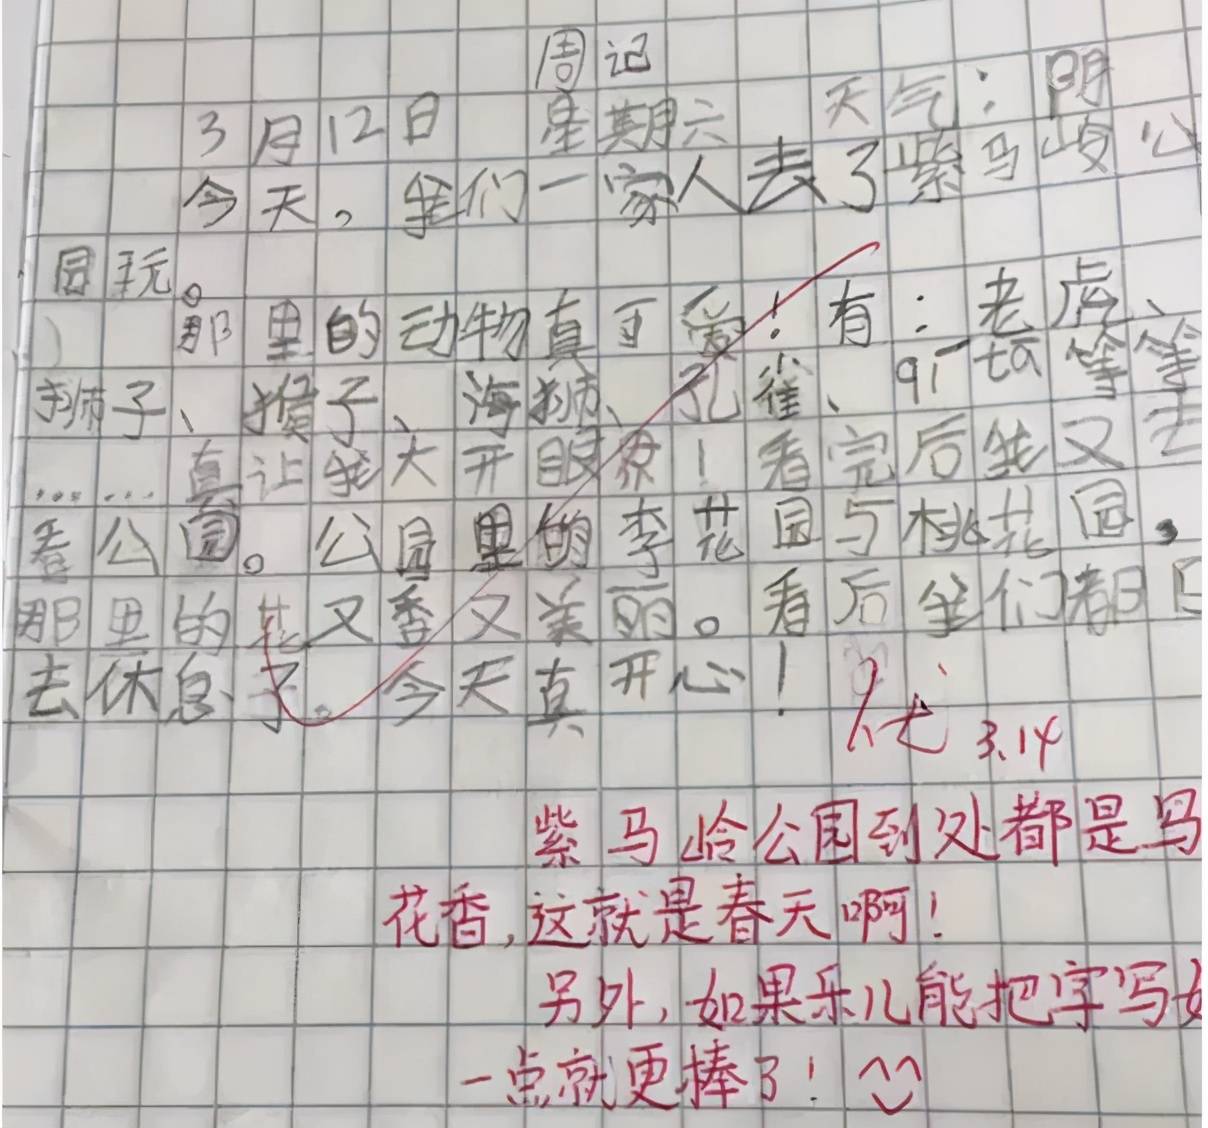 周记
3月12日 星期六 天气:阴
今天。我们一家人去了紫马岭公
园玩。
那里的动物真可爱!有:老虎、
狮子、猴子、海狮、孔雀、等等
……真让我大开眼界!看完后我又去
看公园。公园里的李花园与桃花园.
那里的花又香又美丽。看后我们都
去休息了。今天真开心!
优 3.14
紫马岭公园到处都是鸟
花香,这就是春天啊!
另外,如果乐儿能把字写好
一点就更棒了!